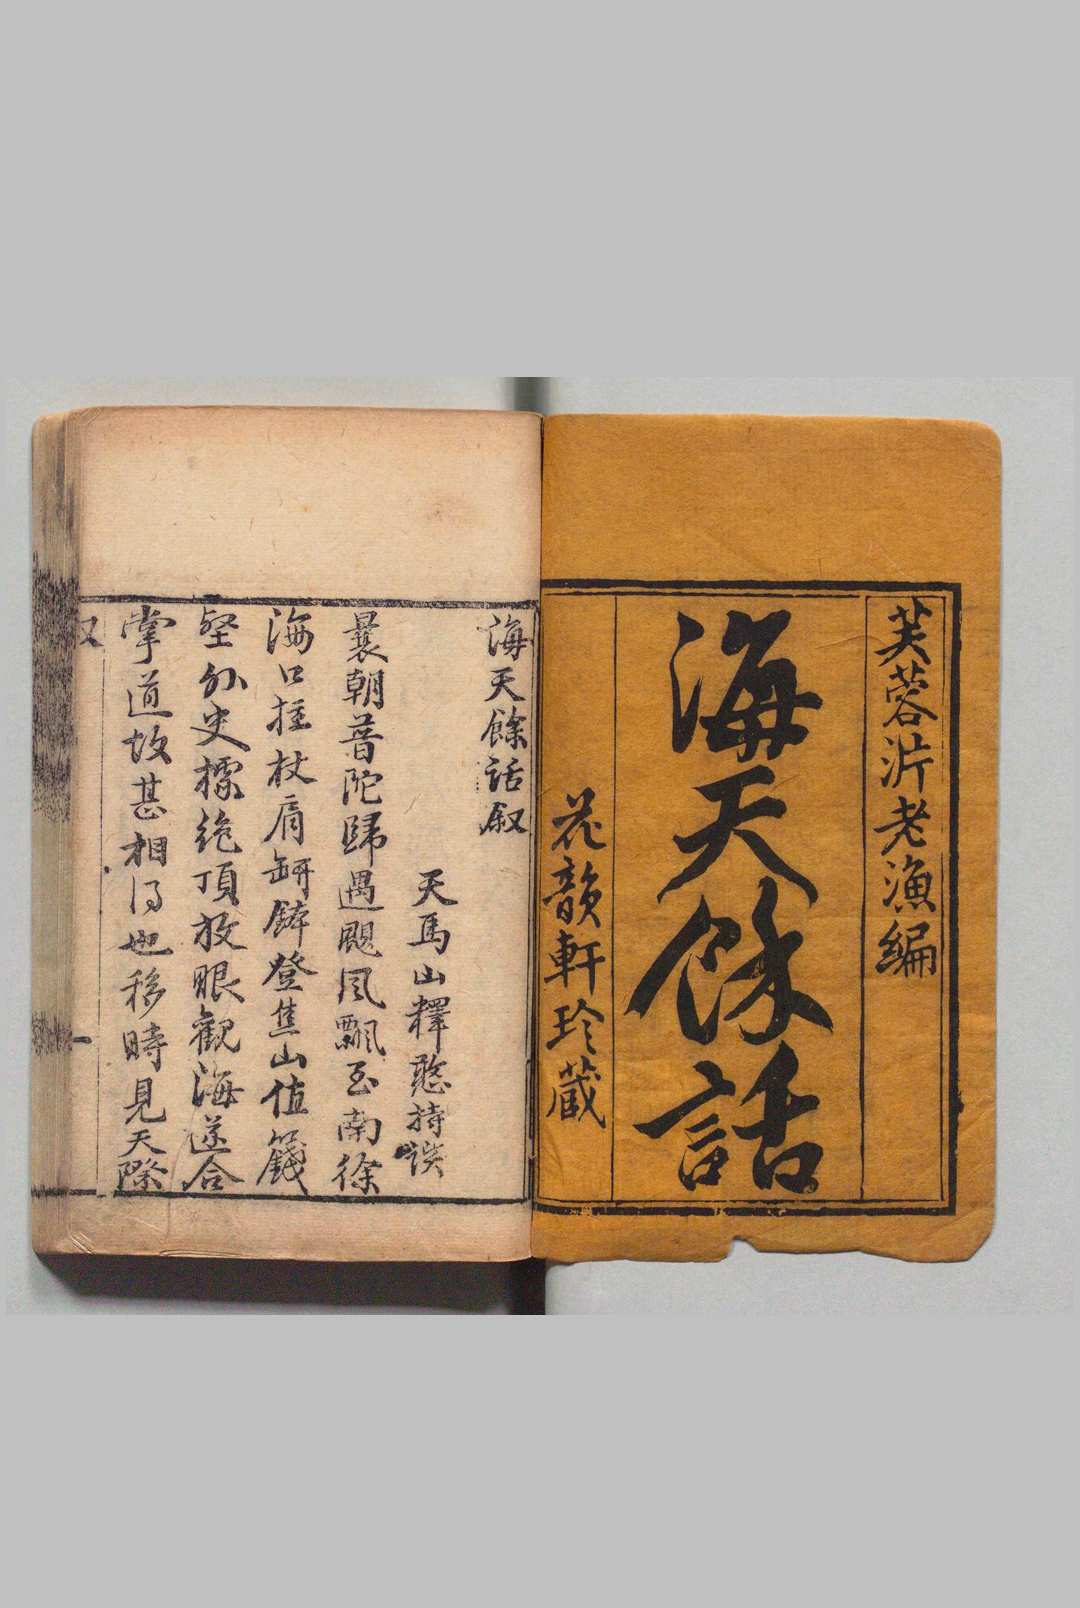 芙蓉泖老漁編
海天餘話
花韻軒珍藏
海天餘話叙
天馬山釋憨持譔
曩朝普陀歸遇颶風飄至南徐
海口拄杖肩缾鉢登焦山值箋
壑外史據絶頂放眼觀海遂合
掌道故甚相得也移時見天際
叙
一